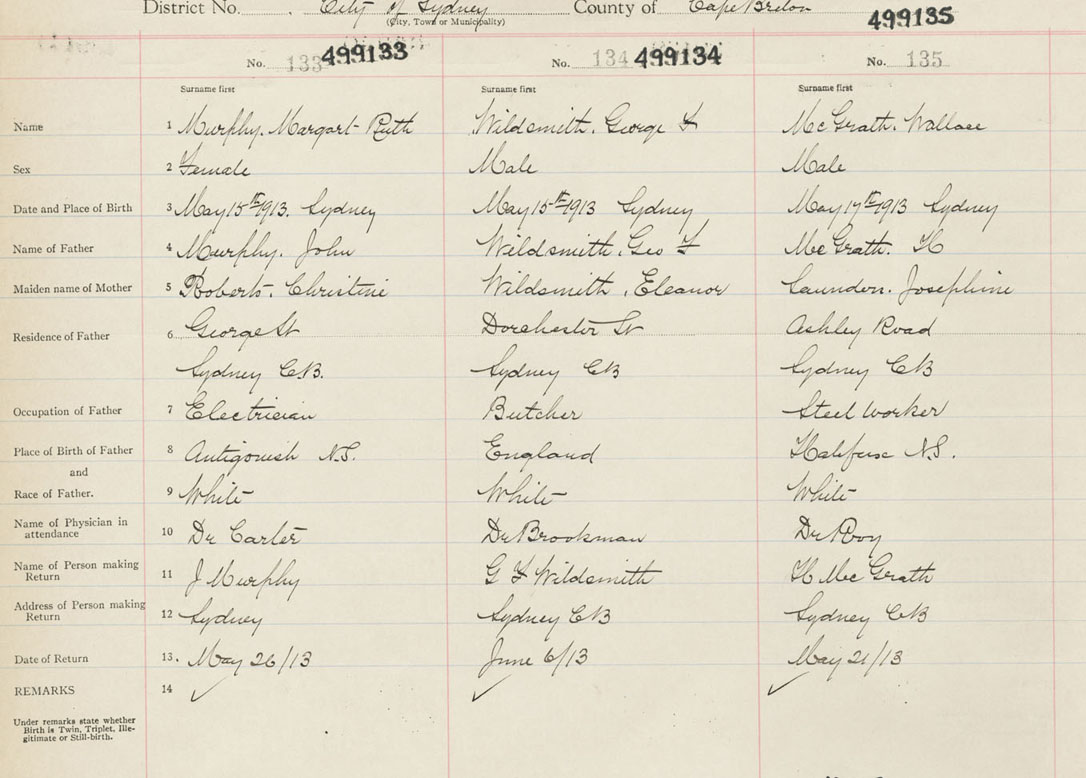 District No. City of Sydney County of Cape Breton
(City, Town or Municipality)
499135
No. 133 499133 No. 134 499134 No. 135
Surname first Surname first Surname first
Name 1 Murphy. Margart Ruth Wildsmith. George F McGrath. Wallace
Sex 2 Female Male Male
Date and Place of Birth 3 May 15th 1913. Sydney May 15th 1913 Sydney May 17th 1913 Sydney
Name of Father 4 Murphy. John Wildsmith. Geo F McGrath. H
Maiden name of Mother 5 Roberts. Christine Wildsmith. Eleanor Josephine
Residence of Father 6 George St Dorchester St Ashley Road
Sydney C.B. Sydney CB Sydney CB
Occupation of Father 7 Electrician Butcher Steel worker
Place of Birth of Father 8 Antigonish N.S. England Halifax N.S.
and
Race of Father. 9 White White White
Name of Physician in attendance 10 Dr Carter Dr Brookman Dr Roy
Name of Person making Return 11 J Murphy G F Wildsmith H McGrath
Address of Person making Return 12 Sydney Sydney CB Sydney CB
Date of Return 13. May 26/13 June 6/13 May 21/13
REMARKS 14
Under remarks state whether
Birth is Twin, Triplet, Ille-
gitimate or Still-birth.